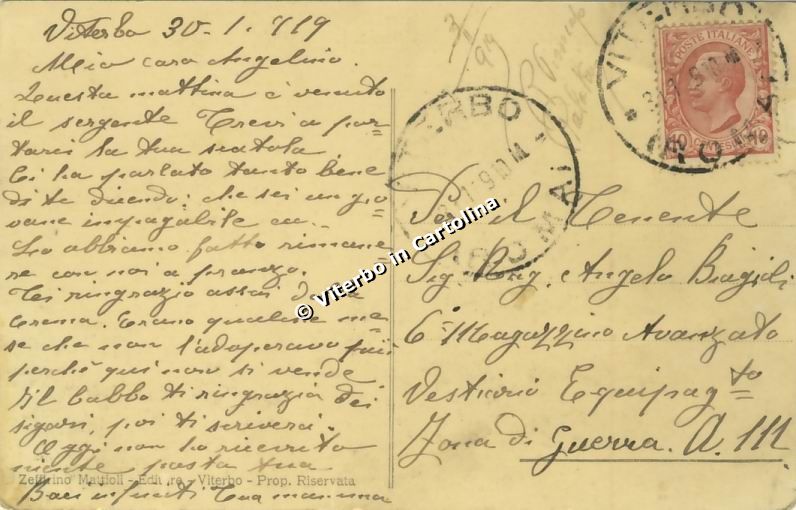 Viterbo 30-1-919
Mio caro Angelino.
Questa mattina è venuto
il sergente Trevi a por=
tarci la tua scatola
Ci ha parlato tanto bene
di te dicendo: che sei un gio=
vane impagabile ecc.
Lo abbiamo fatto rimane
re con noi a pranzo.
Ti ringrazio assai della
crema. Erano qualche me=
se che non l'adoperavo più
perchè qui non si vende
Il babbo ti ringrazia dei
sigari, poi ti scriverà.
Oggi non ho ricevuto
niente posta tua
Baci infiniti tua mamma
Zeffirino Mattioli - Editore - Viterbo - Prop. Riservata
VITERBO
ROMA
POSTE ITALIANE
10 CENTESIMI 10
VITERBO
ROMA
Per il Tenente
Sig. Rag. Angelo Biagioli
6° Magazzino Avanzato
Vestiario Equipagto
Zona di Guerra. A. III
© Viterbo in Cartolina